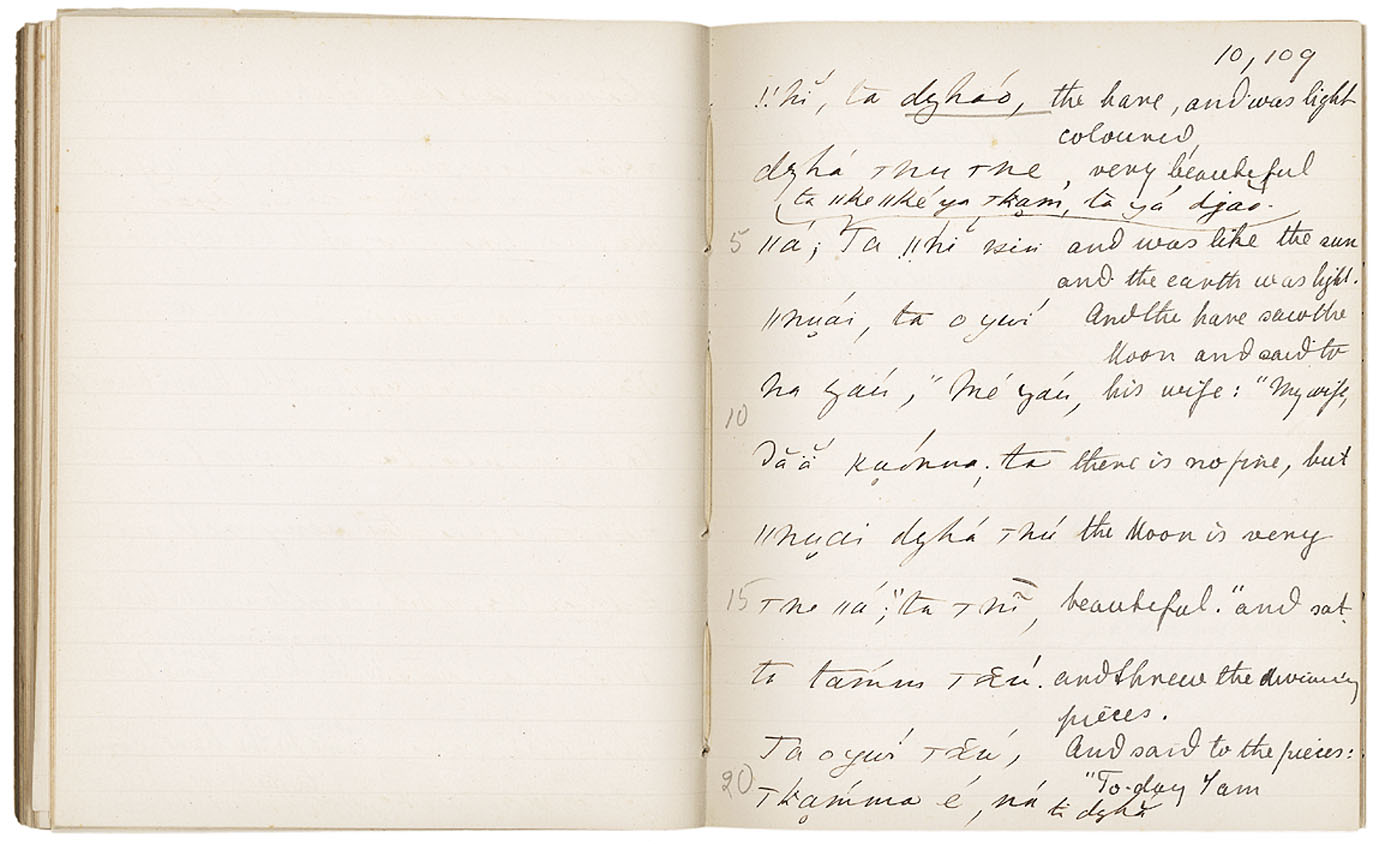 10,109
!hĭ, ta dzháo, the hare, and was light
coloured,
dzhá ꞱnuꞱne, very beautiful
ta ǁkeǁké ya Ʇkam, ta yá djao.
5 ǁá; Ta ǃhí nsin and was like the sun
and the earth was light.
ǁnu̥ái, ta o ywi And the hare saw the
Moon and said to
ha zaú, "Mé zaú, his wife: "My wife,
10
Dăä̆ ku̥ónna; ta there is no fire, but
ǁnu̥ai dzhá Ʇnú the Moon is very
15 Ʇne ǁá;" ta Ʇnī, beautiful." and sat,
ta and threw the divining
pieces.
Ta o ywi And said to the pieces:
"To-day I am
20 Ʇkḁmma é, ná ti dzhá